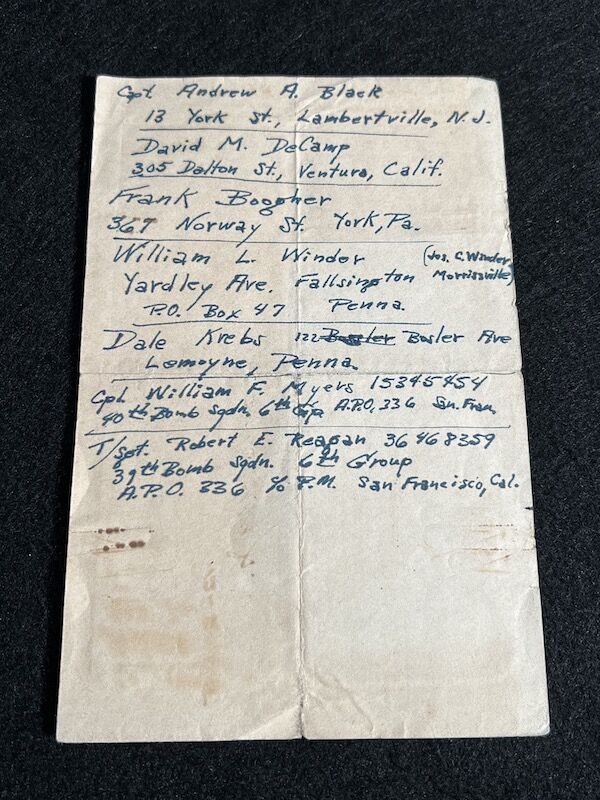 Cpl Andrew A. Black
13 York St., Lambertville, N.J.
David M. DeCamp
305 Dalton St., Ventura, Calif.
Frank Boogher
367 Norway St. York, Pa.
William L. Winder (Jos. C. Winder
Yardley Ave. Fallsington Morrisville)
P.O. Box 47 Penna.
Dale Krebs 122 Bosler Ave
Lemoyne, Penna.
Cpl William F. Myers 15345454
40th Bomb Sqdn, 6th Grp A.P.O, 336 San. Fran.
T/Sgt. Robert E. Reagan 36468359
39th Bomb Sqdn. 6th Group
A.P.O. 336 % P.M. San Francisco, Cal.